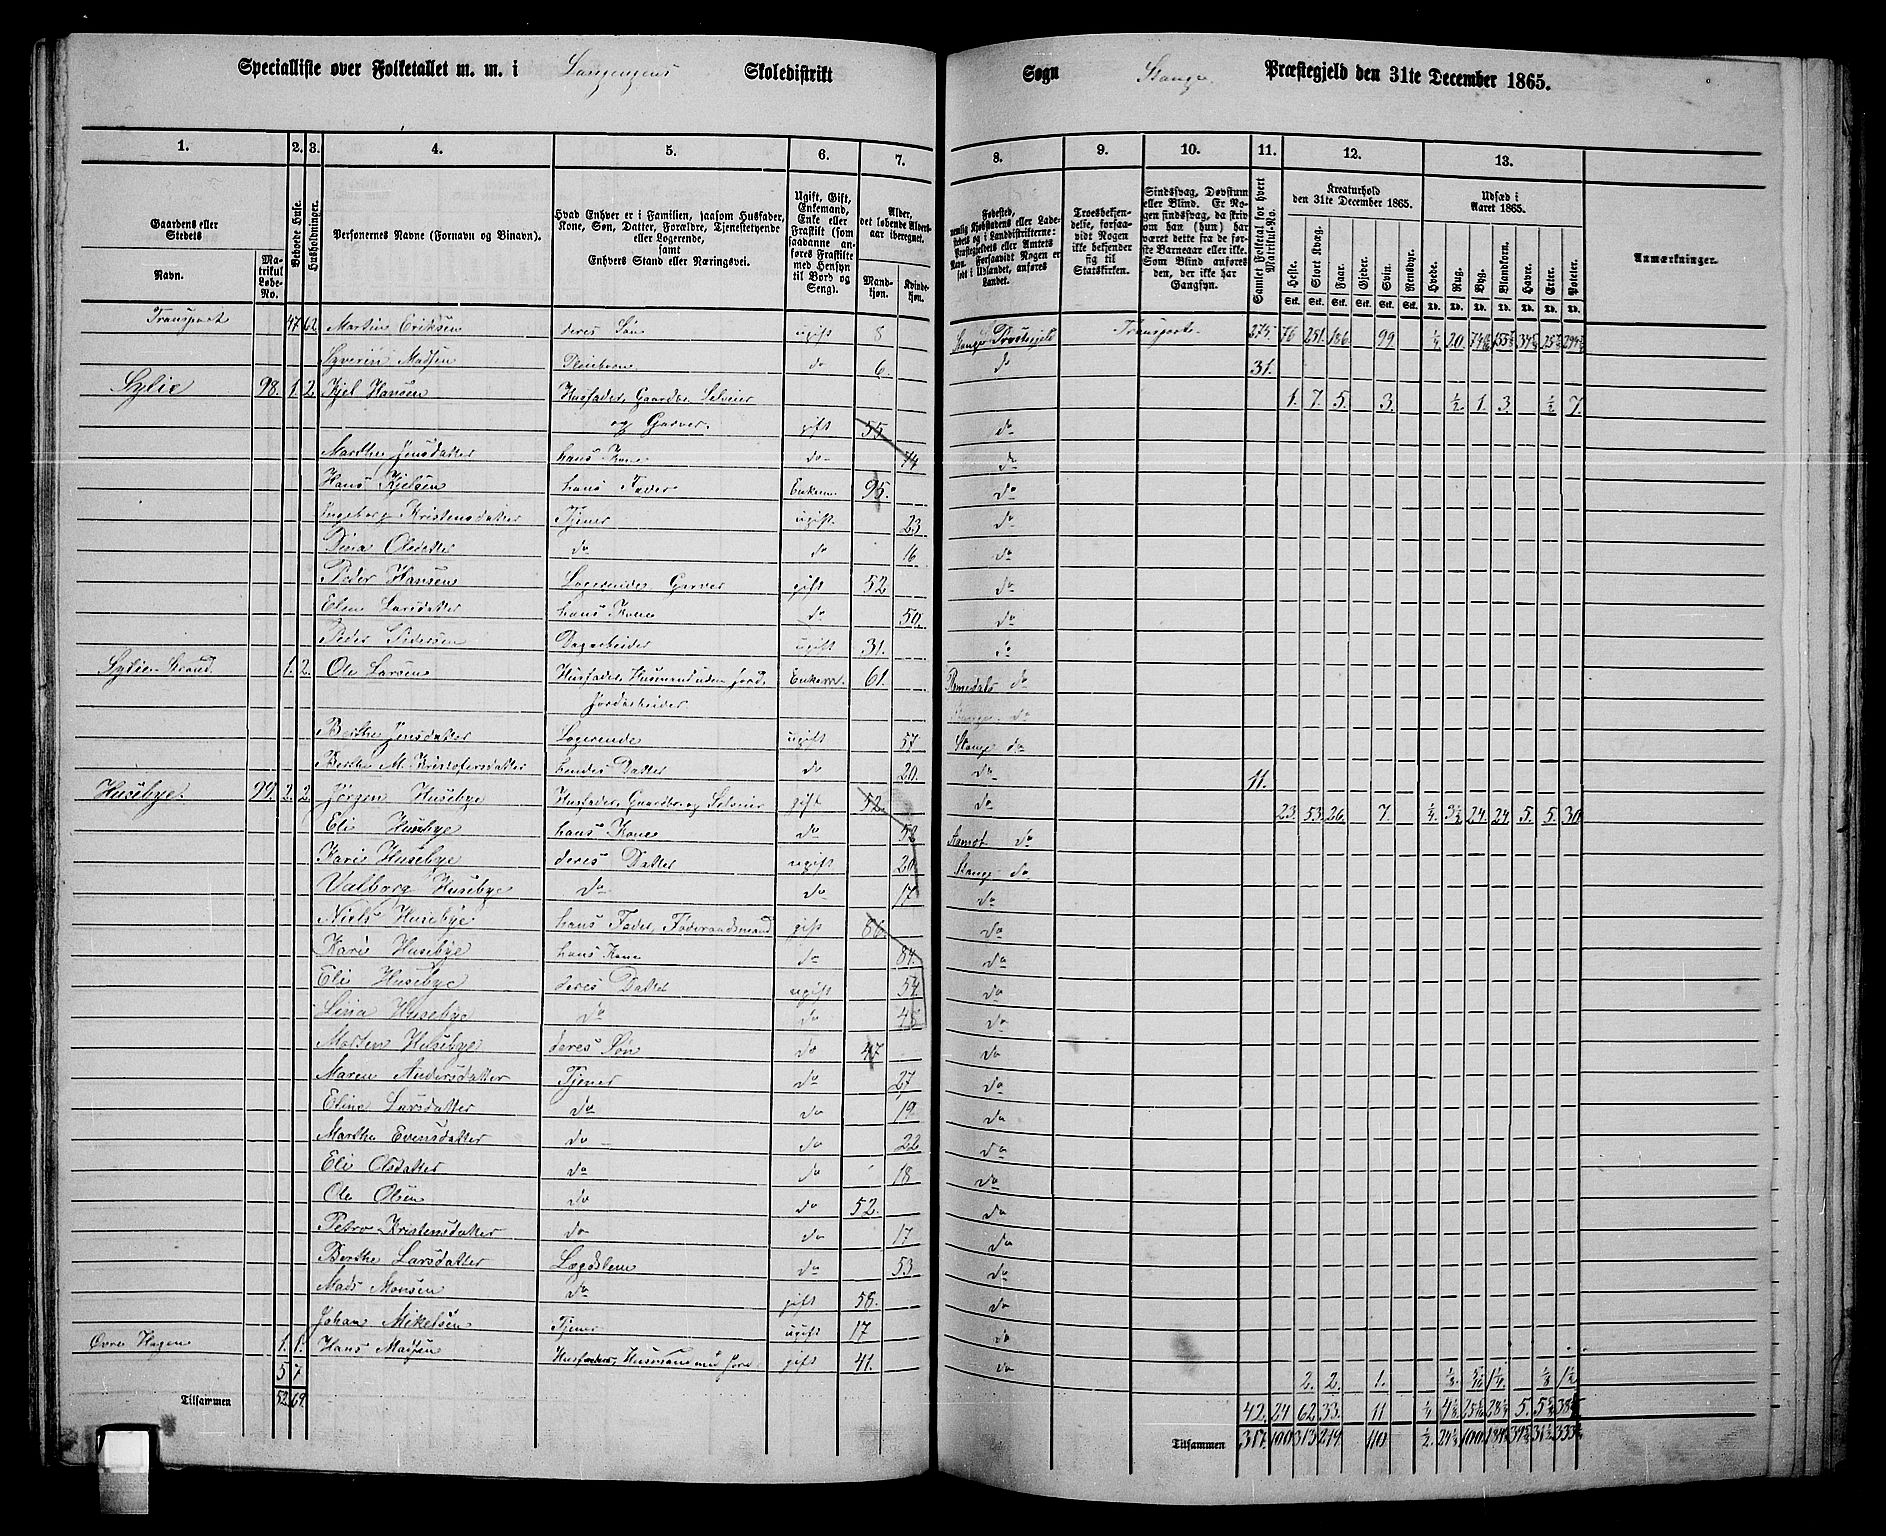 Specialliste over Folketallet m. m. i Skoledistrikt Sogn Stange Præstegjeld den 31te December 1865.
1. 2. 3. 4. 5. 6. 7. 8. 9. 10. 11. 12. 13.
Gaardens eller Stedets Navn. Matrikul Løbe-No. Beboede Huse. Husholdninger.
Personernes Navne (Fornavn og Binavn).
Hvad Enhver er i Familien, saasom Husfader, Kone, Søn, Datter, Forældre, Tjenestetyende eller Logerende, samt Enhvers Stand eller Næringsvei.
Ugift, Gift, Enkemand, Enke eller Fraskilt (som saadanne anføres Fraskilte med Hensyn til Bord og Seng).
Alder, det løbende Aldersaar iberegnet. Mandkjøn. Kvindekjøn.
Troesbekjendelse, forsaavidt Nogen ikke bekjender sig til Statskirken.
Samlet Folketal for hvert Matrikul-No.
Kreaturhold den 31te December 1865. Heste. Stort Kvæg. Faar. Gjeder. Svin. Rensdyr.
Udsæd i Aaret 1865. Hvede. Rug. Byg. Blandkorn. Havre. Erter. Poteter.
Anmærkninger.
Transport 47 62 Martin Eriksen deres Søn ugift 8 Stange Præstegjeld Transport 275. 76 251. 186. 99.
Syverin Madsen do 6. do 31.
Sylie 98. 1. 2. Kjel Hansen Husfader, Gaardbr. Selveier 1. 7. 5. 3. ½ 1. 3. ½ 7.
og Garver. gift 55 do
Marthe Jensdatter hans Kone do 74 do
Hans Kjelsen hans Fader Enkem. 95. do
Ingeborg Kristensdatter Tjener ugift. 23 do
Dina Olsdatter do do 16 do
Peder Hansen Logerende Garver gift 52 do
Elen Larsdatter hans Kone do 50. do
Peder Pedersen Dagarbeider ugift 31. do
1. 2. Ole Larsen Husfader, Husmand uden Jord, Enkem. 61. Romedals do
Jordarbeider
Berthe Jensdatter Logerende ugift 57 Stange do
Berthe M. Kristofersdatter hendes Datter do 20. do 11.
Husebye. 99. 2. 2. Jørgen Husebye Husfader, Gaardbr. og Selveier gift 52. do 23. 53. 26. 7. ¼ 3½ 24. 24. 5. 5. 30
Eli Husebye hans Kone do 52 Aamot do
Karie Husebye deres Datter ugift 20 Stange do
Valborg Husebye do do 17 do
Niels Husebye hans Fader, Føderaadsmand gift 86. do
Karie Husebye hans Kone do 84. do
Eli Husebye deres Datter ugift 54. do
Lina Husebye do do do
Morten Husebye deres Søn do 47 do
Maren Andersdatter Tjener do 27 do
Eline Larsdatter do do 19 do
Marthe Evensdatter do do 22 do
Eli Olsdatter do do 18 do
Ole Olsen do do 52. do
Petra Kristensdatter do do 17 do
Berthe Larsdatter Lægdslem do 53 do
Mads Monsen do gift 58. do
Johan Mikelsen Tjener ugift 17 do
Øvre Hagen 1. 1. Hans Madsen Husfader, Husmand med Jord gift 41. do
5 7 2. 2. 1.
Tilsammen 52 69 42. 24 62 33. 11
Tilsammen 317. 100 313 219. 110